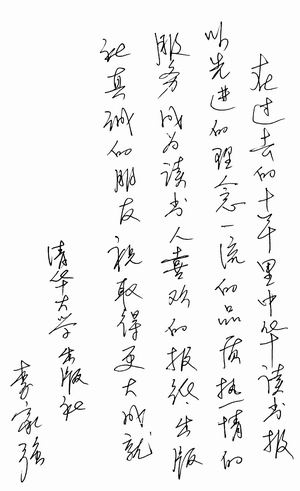 在过去的十年里中华读书报
以先进的理念一流的品质热情的
服务成为读书人喜欢的报纸、出版
社真诚的朋友祝取得更大成就
清华大学出版社
李家强